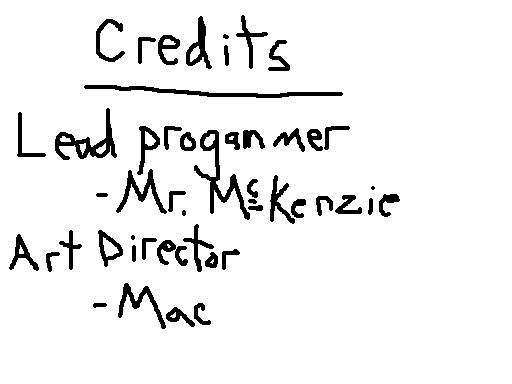 Credits
Lead proganmer
-Mr. McKenzie
Art Director
-Mac